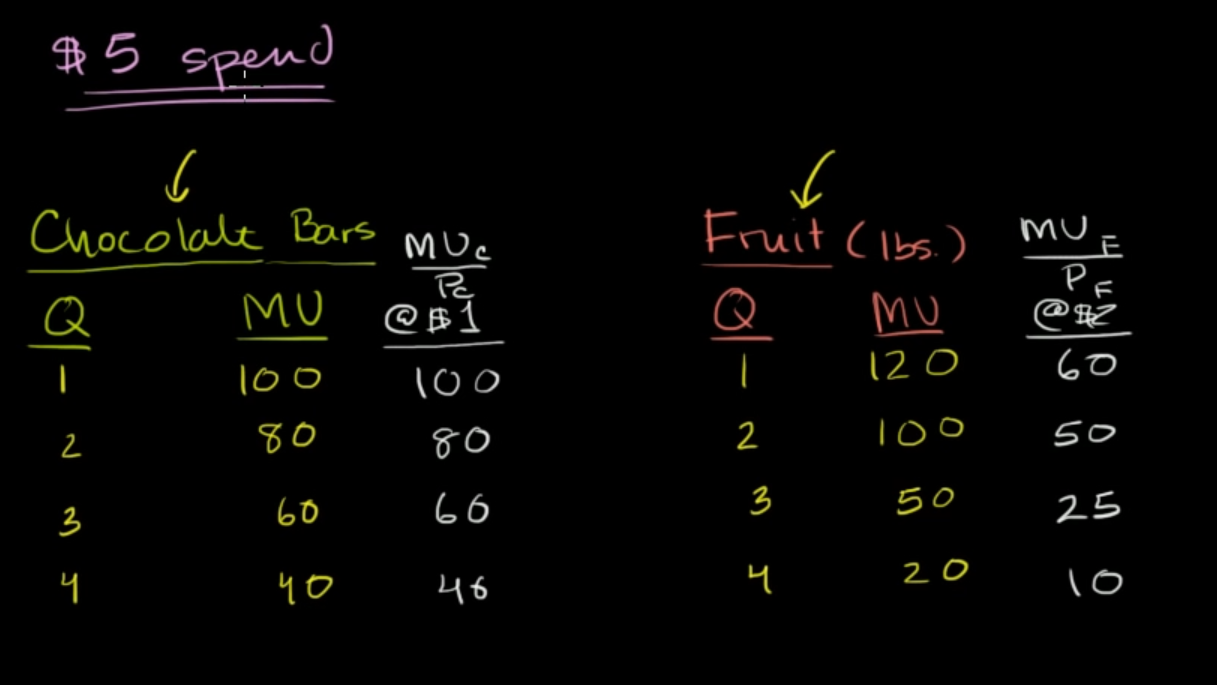 $5 spend
Chocolate Bars MUc/Pc @$1
Q MU
1 100 100
2 80 80
3 60 60
4 40 40
Fruit (lbs.) MU F/P F @$2
Q MU
1 120 60
2 100 50
3 50 25
4 20 10